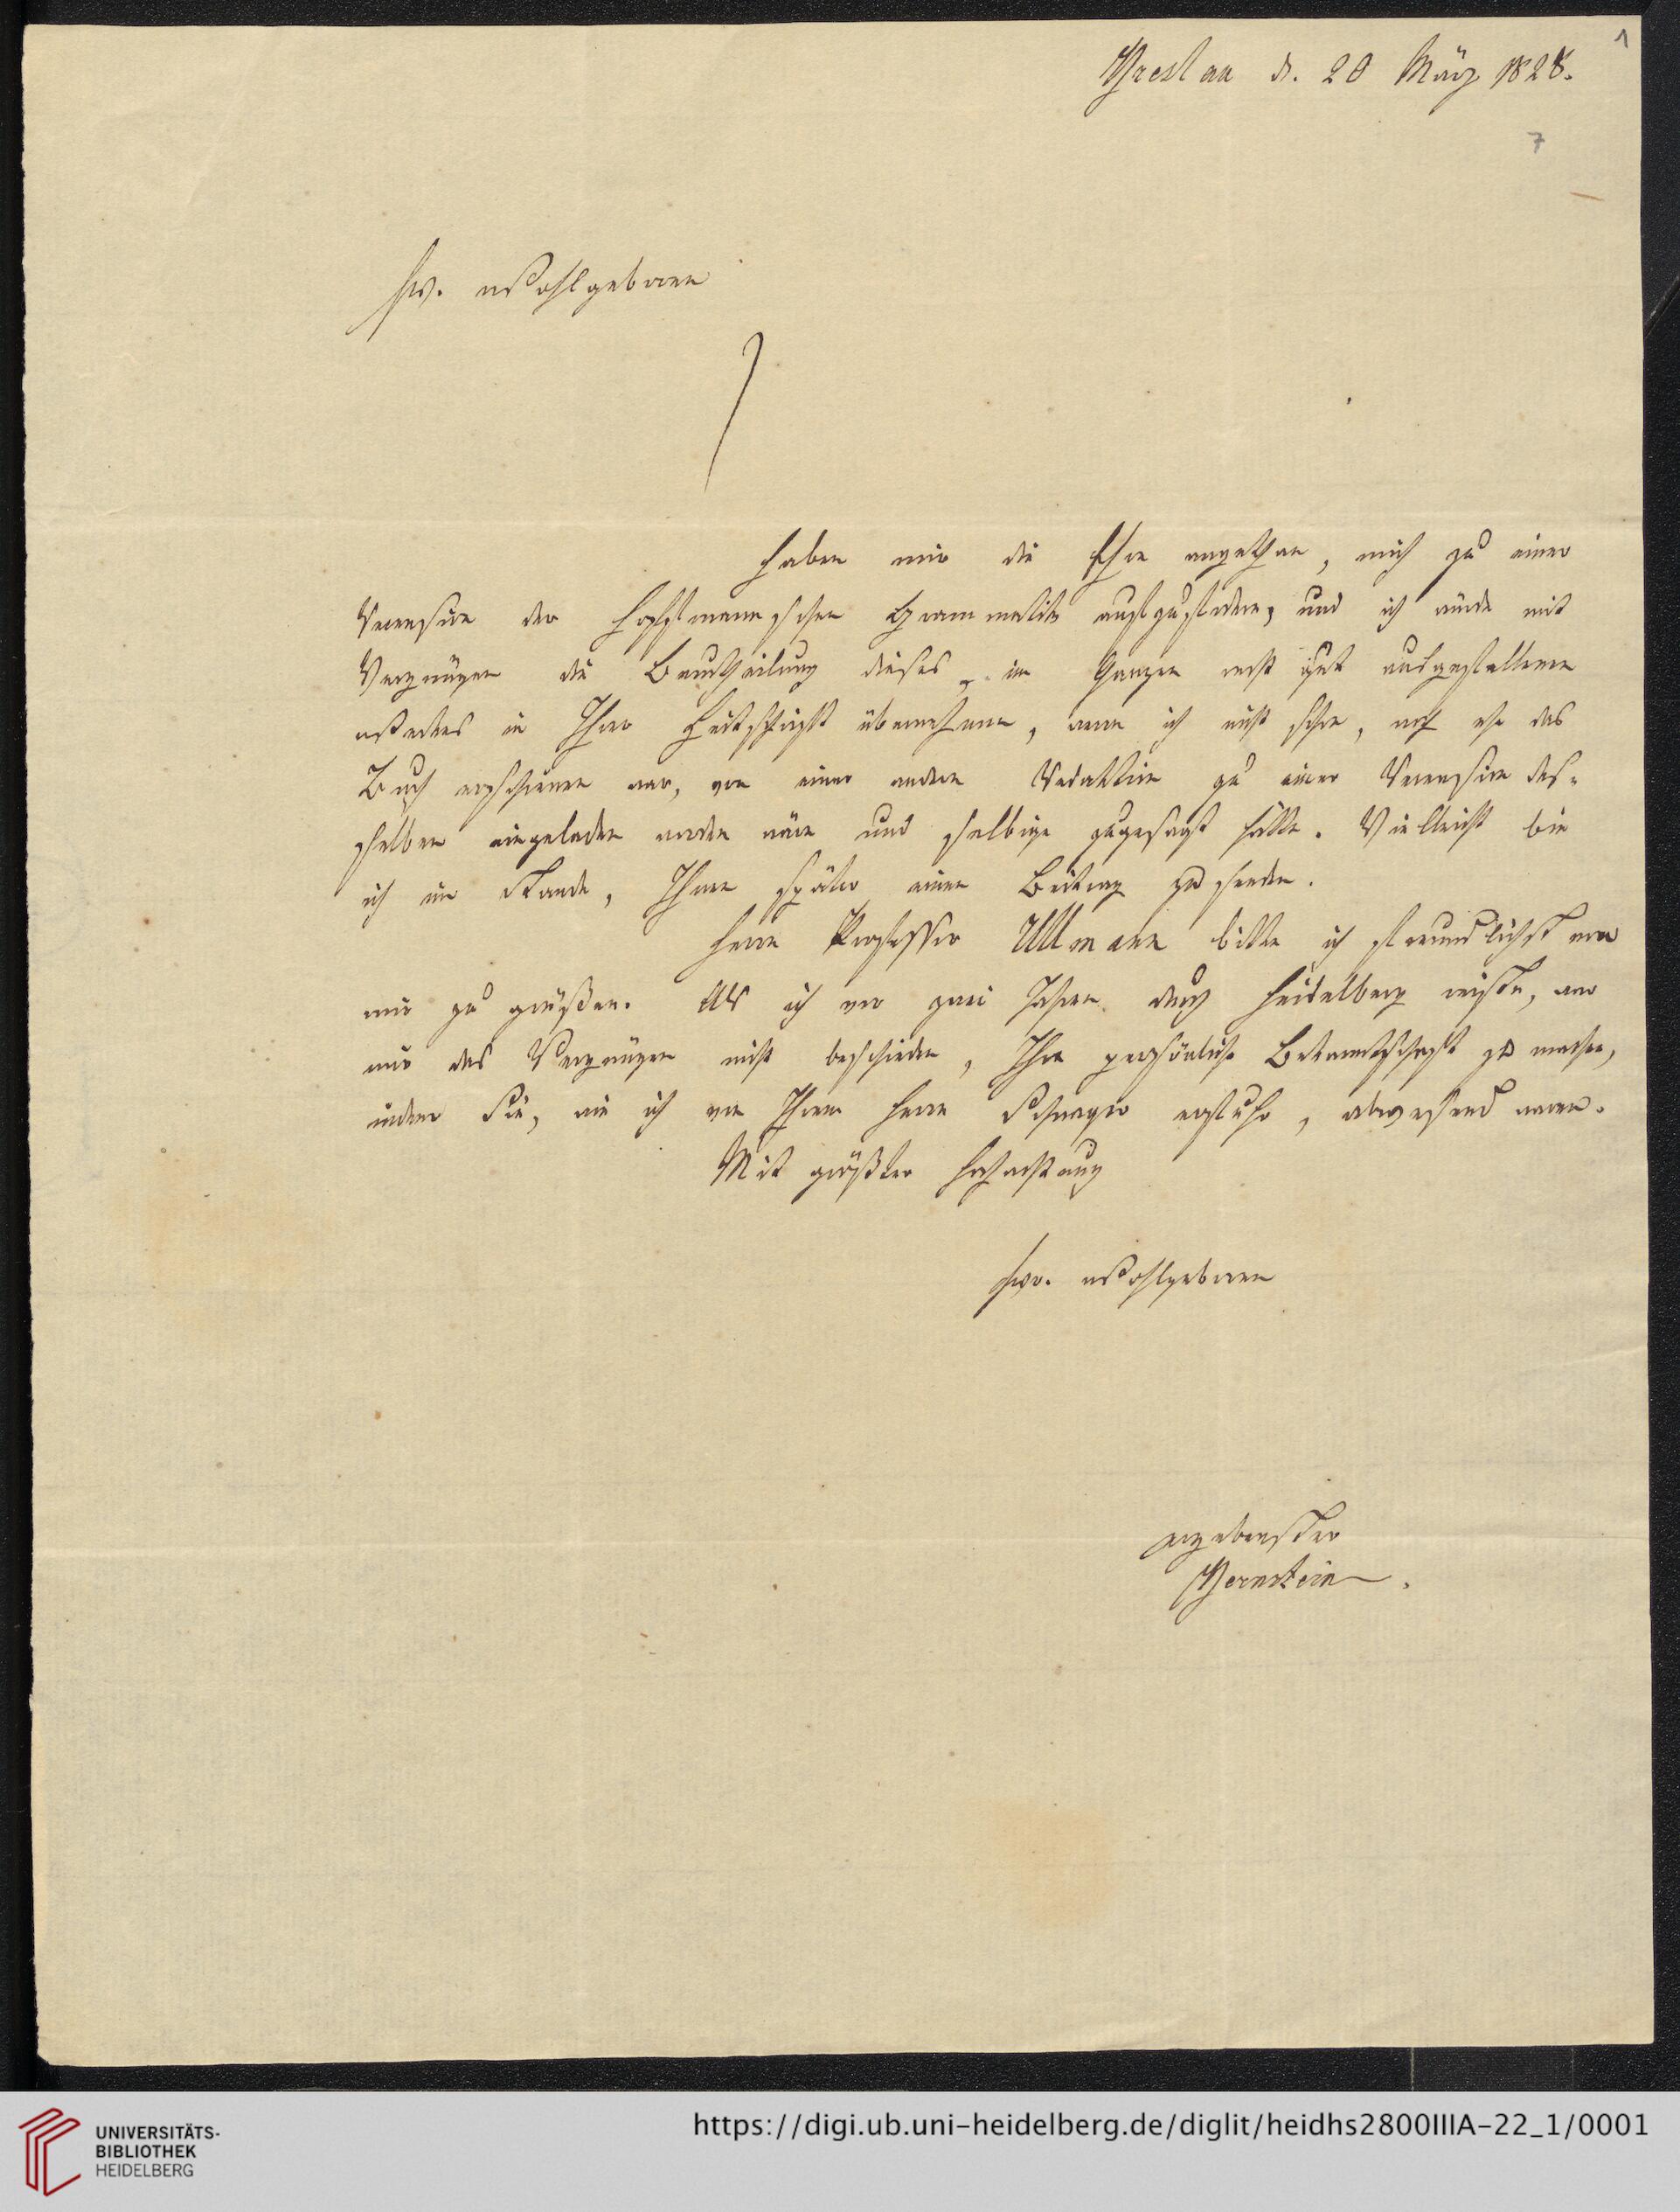 1
Breslau d. 20 März 1828.
7
Ew. Wohlgeboren
haben mir die Ehre angethan, mich zu einer
Recension der Hoffmannschen Grammatik aufzufodern, und ich würde mit
Vergnügen die Beurtheilung dieses, im Ganzen recht gut ausgefallenen
Werkes in Ihrer Zeitschrift übernehmen, wenn ich nicht schon, noch ehe das
Buch erschienen war, von einer andern Redaktion zu einer Recension des-
selben eingeladen worden wäre und selbige zugesagt hätte. Vielleicht bin
ich im Stande, Ihnen später einen Beitrag zu senden.
Herrn Professor Ullmann bitte ich freundlichst von
mir zu grüßen. Als ich vor zwei Jahren durch Heidelberg reiste, war
mir das Vergnügen nicht beschieden, Ihre persönliche Bekanntschaft zu machen,
indem Sie, wie ich von Ihrem Herrn Schwager erfuhr, abwesend waren.
Mit größter Hochachtung
Ewr. Wohlgeboren
ergebenster
Bernstein.
UNIVERSITÄTS-
BIBLIOTHEK
HEIDELBERG
https://digi.ub.uni-heidelberg.de/diglit/heidhs2800IIIA-22_1/0001